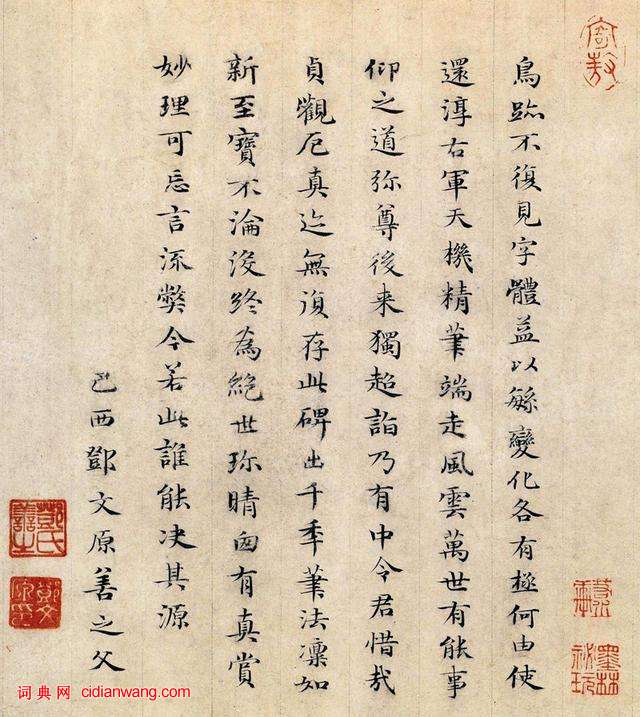 鳥跡不復見字體益以緐變化各有極何由使
還淳右軍天機精筆端走風雲萬世有能事
仰之道弥尊後来獨超詣乃有中令君惜哉
貞觀厄真迹無復存此碑出千季筆法凛如
新至寶不淪没終為絕世珍晴囱有真賞
妙理可忘言流弊今若此誰能决其源
己酉鄧文原善之父
墨林祕玩
词典网 cidianwang.com